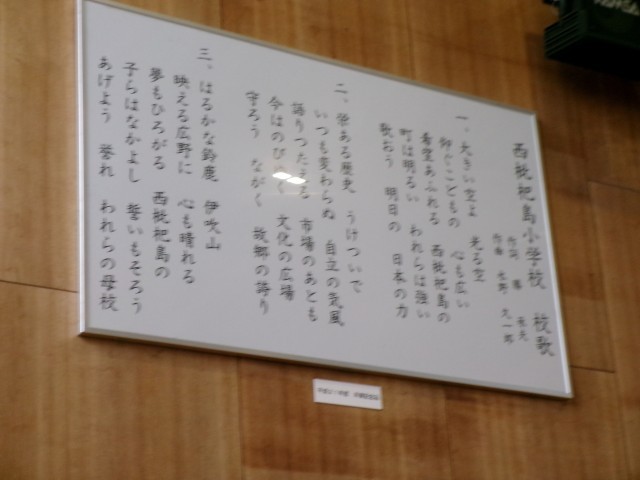 西枇杷島小学校 校歌
作詞
作曲
一、大きい空よ 光る空
仰ぐこどもの 心も広い
希望あふれる 西枇杷島の
町は明るい われらは強い
歌おう 明日の 日本の力
二、栄ある歴史 うけついで
いつも変わらぬ 自立の気風
語りつたえる 市場のあとも
今はのびゆく 文化の広場
守ろう ながく 故郷の誇り
三、はるかな鈴鹿 伊吹山
映える広野に 心も晴れる
夢もひろがる 西枇杷島の
子らはなかよし 誓いもそろう
あげよう 誉れ われらの母校